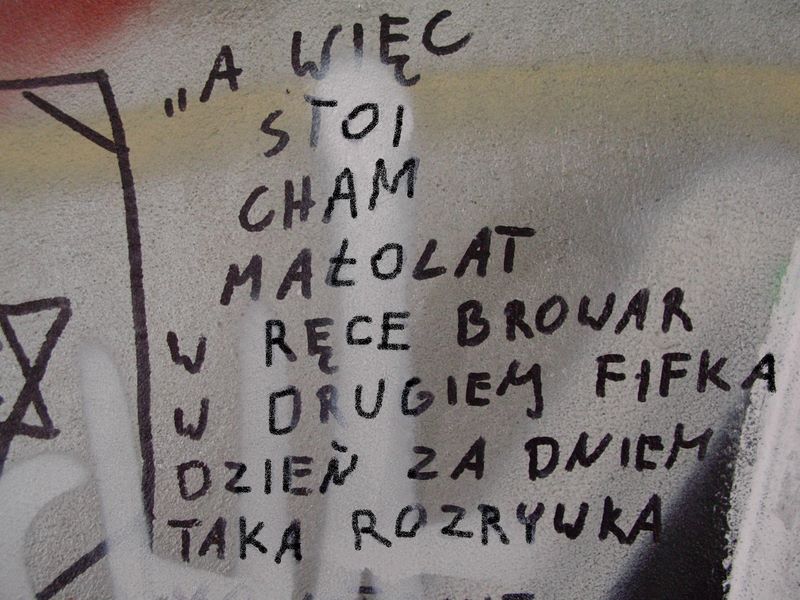 „A WIĘC
STOI
CHAM
MAŁOLAT
W RĘCE BROWAR
W DRUGIEJ FIFKA
DZIEŃ ZA DNIEM
TAKA ROZRYWKA